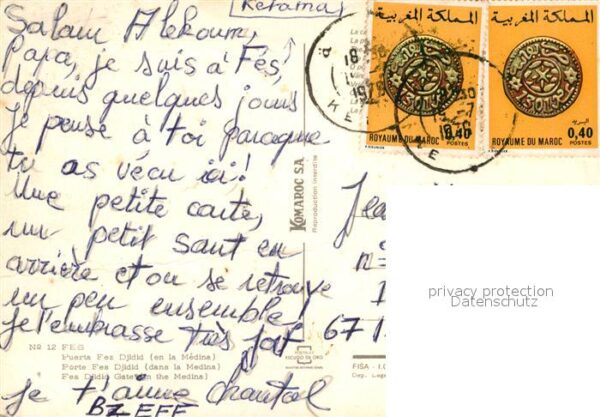 (Ketama)
Salam Alekoum,
Papa, je suis à Fès,
depuis quelques jours
Je pense à toi parceque
tu as vécu ici!
Une petite carte,
un petit saut en
arrière et on se retrouve
un peu ensemble!
Je t'embrasse très fort
Je t'aime Chantal
BZEFF
No 12 FES
Puerta Fez Djidid (en la Médina)
Porte Fes Djidid (dans la Medina)
Fes Djdid Gate (in the Medina)
KOMAROC S.A.
Reproduction interdite
ESCUDO DE ORO
FISA - I.
Dep. Lega
Jea
n=
67 1
المملكة المغربية
ROYAUME DU MAROC
0,40
POSTES
المملكة المغربية
ROYAUME DU MAROC
0,40
POSTES
البريد
18
1978
KE
privacy protection
Datenschutz